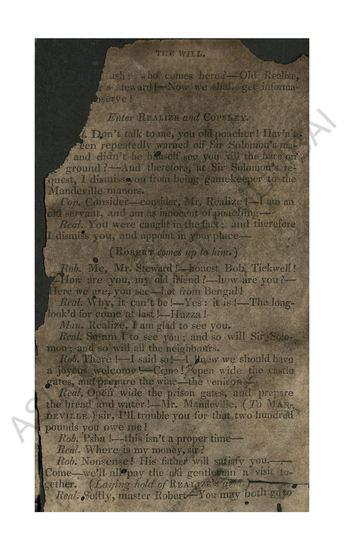 THE WILL.
ush: who comes here?—Old Realize,
's steward!—Now we shall get informa-
observe!
Enter REALIZE and COPSLEY.
Don't talk to me, you old poacher! Hav'n't
een repeatedly warned off Sir Solomon's ma-
and didn't he himself see you kill the hare on
ground?—And therefore, at Sir Solomon's re-
quest, I dismiss you from being gamekeeper to the
Mandeville manors.
Cop. Consider—consider, Mr. Realize!—I am an
old servant, and am as innocent of poaching—
Real. You were caught in the fact; and therefore
I dismiss you, and appoint in your place—
(ROBERT comes up to him.)
Rob. Me, Mr. Steward!—honest Bob Tickwell!
—How are you, my old friend?—how are you?—
Here we are, you see—hot from Bengal!
Real. Why, it can't be!—Yes: it is!—The long-
look'd for come at last!—Huzza!
Man. Realize, I am glad to see you.
Real. So am I to see you; and so will Sir Solo-
mon; and so will all the neighbours.
Rob. There!—I said so!—I knew we should have
a joyous welcome!—Come! open wide the castle
gates, and prepare the wine—the venison—
Real. Open wide the prison gates, and prepare
the bread and water!—Mr. Mandeville, (To MAN-
DEVILLE) sir, I'll trouble you for that two hundred
pounds you owe me!
Rob. Psha!—this isn't a proper time—
Real. Where is my money, sir?
Rob. Nonsense! His father will satisfy you.—
Come—we'll all pay the old gentleman a visit to-
gether. (Laying hold of REALIZE's
Real. Softly, master Robert—You may both go to